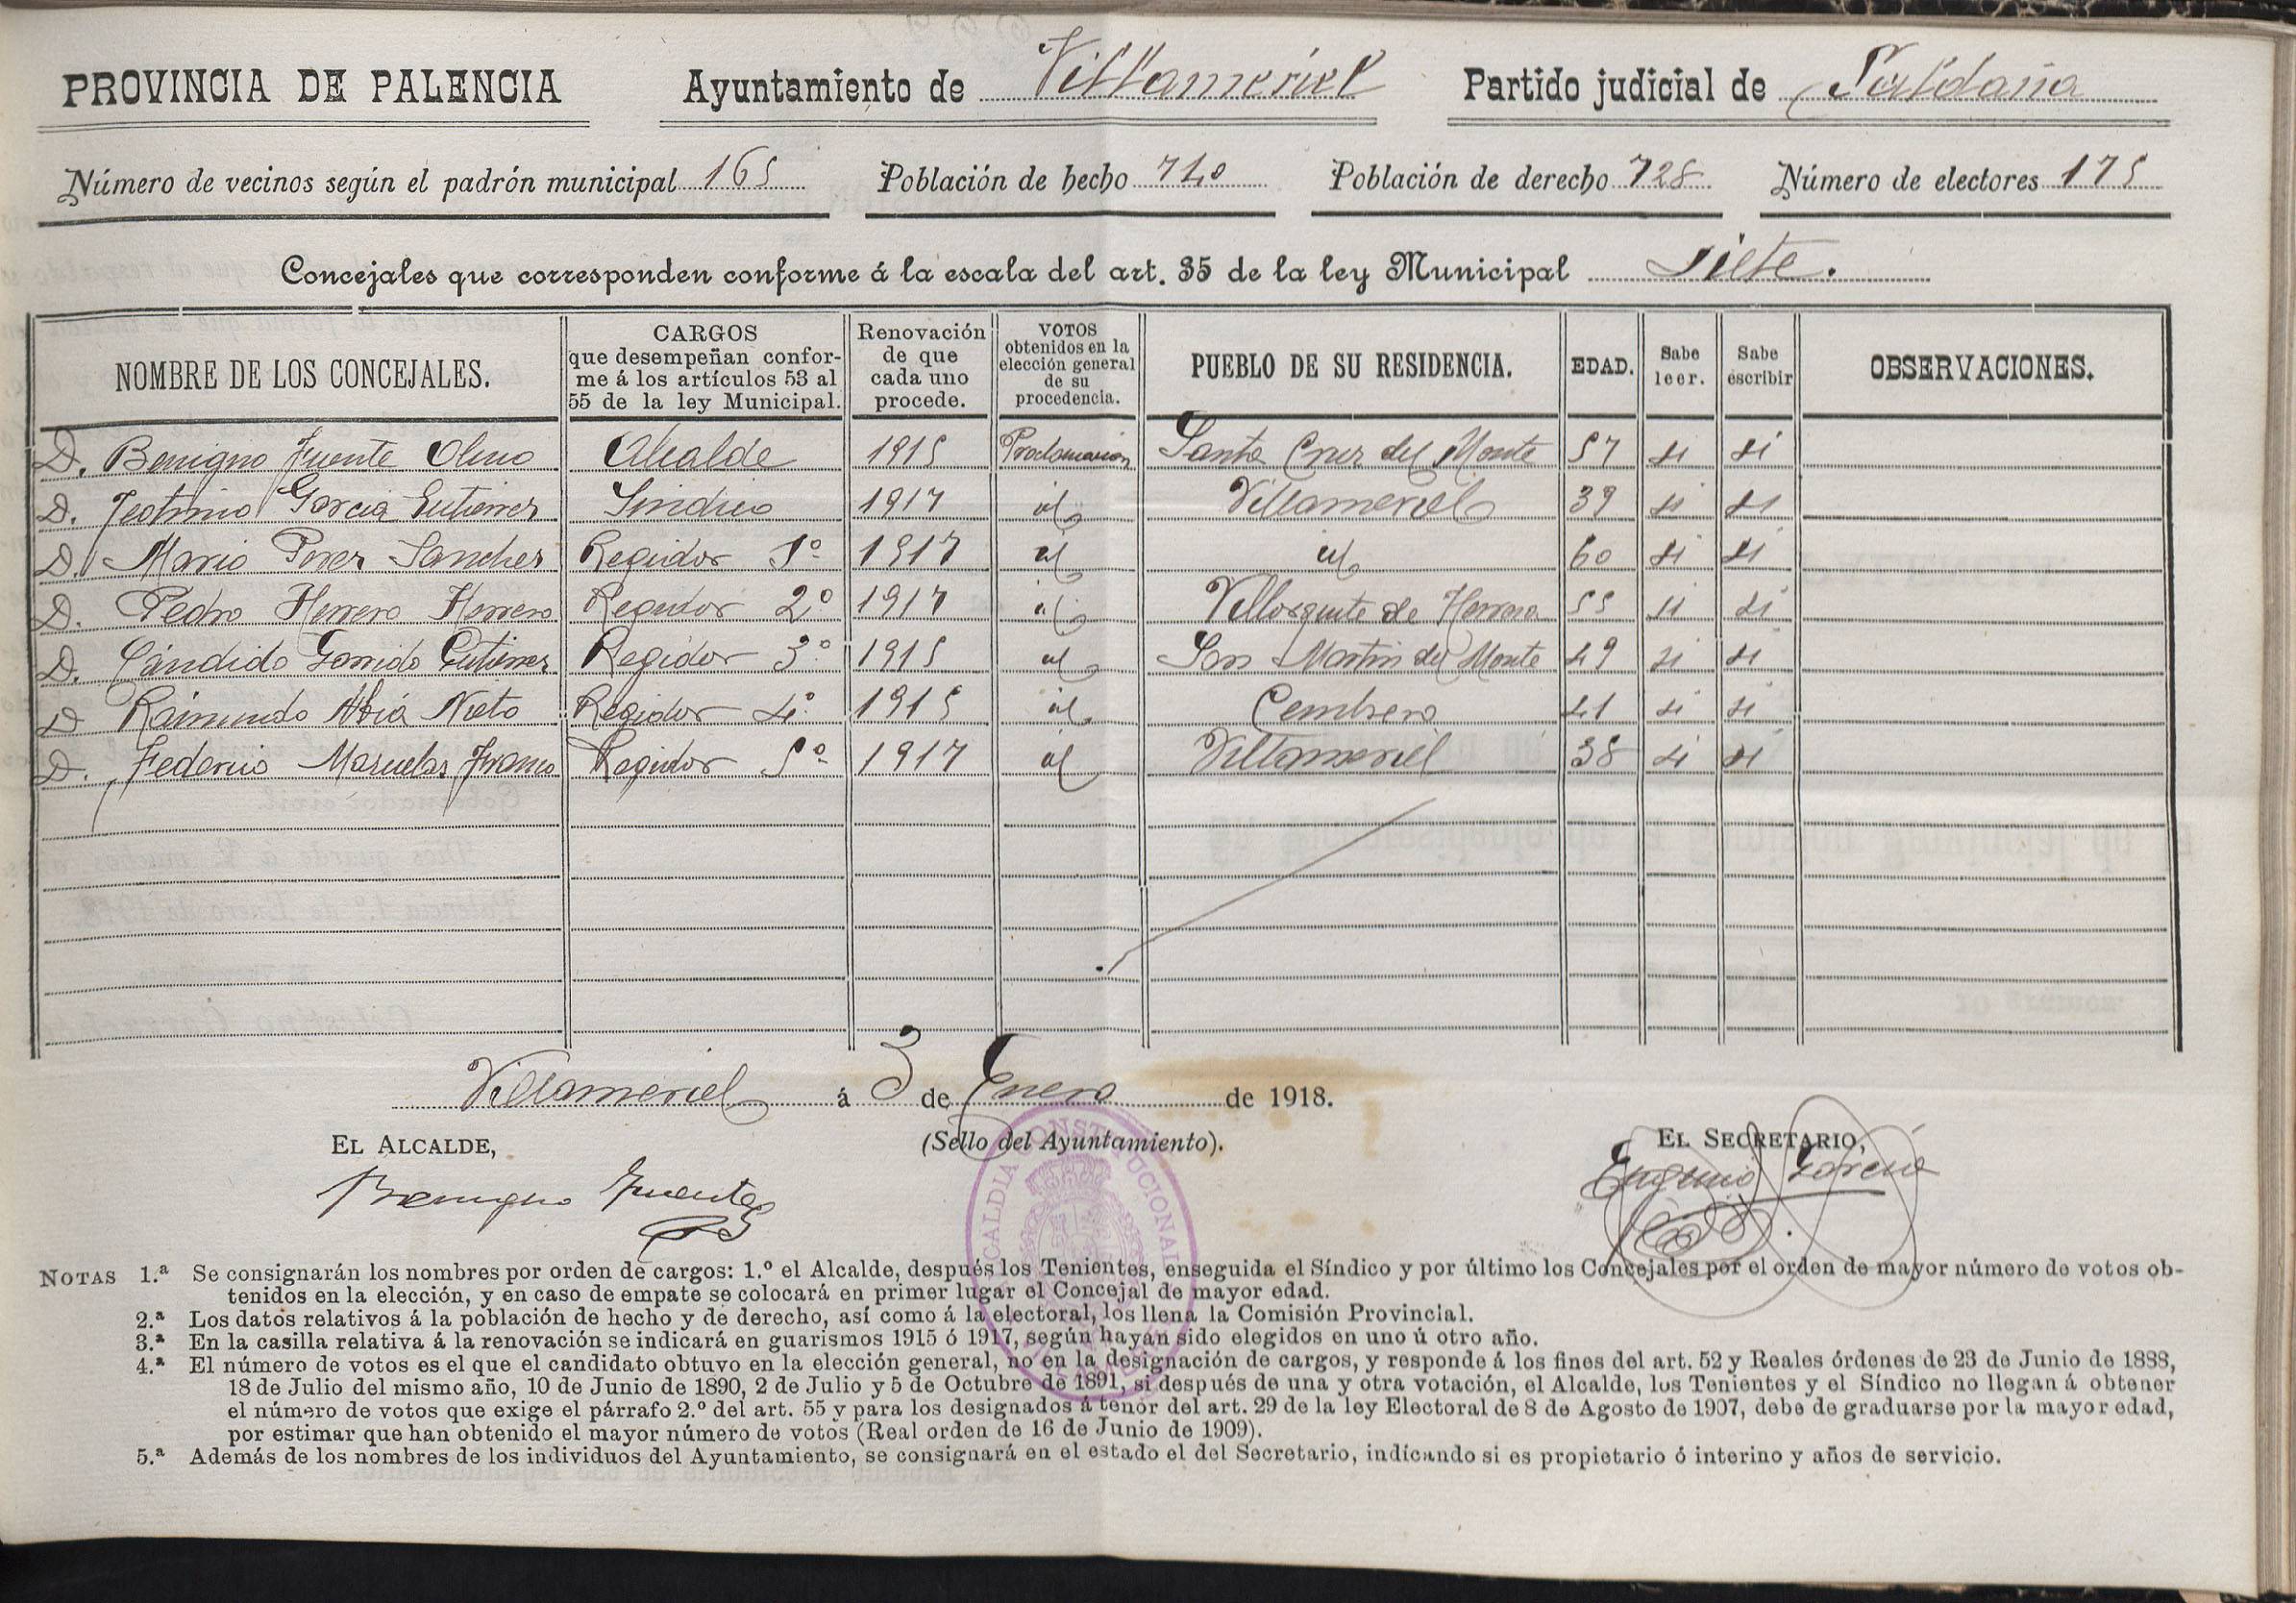 PROVINCIA DE PALENCIA Ayuntamiento de Villameriel Partido judicial de Saldaña
Número de vecinos según el padrón municipal 165 Población de hecho 740 Población de derecho 728 Número de electores 175
Concejales que corresponden conforme á la escala del art. 35 de la ley Municipal Siete.
NOMBRE DE LOS CONCEJALES.
CARGOS
que desempeñan confor-
me á los artículos 53 al
55 de la ley Municipal.
Renovación
de que
cada uno
procede.
VOTOS
obtenidos en la
elección general
de su
procedencia.
PUEBLO DE SU RESIDENCIA.
EDAD.
Sabe
leer.
Sabe
escribir
OBSERVACIONES.
D. Benigno Fuente Olmo Alcalde 1915 Proclamación Santa Cruz del Monte 57 si si
D. Teotimo Garcia Gutierrez Sindico 1917 id Villameriel 39 si si
D. Mario Perez Sanchez Regidor 1º 1917 id id 60 si si
D. Pedro Herrero Herrero Regidor 2º 1917 id Villorquite de Herrera 55 si si
D. Cándido Garrido Gutierrez Regidor 3º 1915 id San Martin del Monte 49 si si
D Raimundo Abia Nieto Regidor 4º 1915 id Cembrero 41 si si
D. Federico Mazuelas Franco Regidor 5º 1917 id Villameriel 38 si si
Villameriel á 3 de Enero de 1918.
EL ALCALDE, (Sello del Ayuntamiento). EL SECRETARIO,
Benigno Fuente Eugenio
ALCALDIA CONSTITUCIONAL
NOTAS 1.ª Se consignarán los nombres por orden de cargos: 1.º el Alcalde, después los Tenientes, enseguida el Síndico y por último los Concejales por el orden de mayor número de votos ob-
tenidos en la elección, y en caso de empate se colocará en primer lugar el Concejal de mayor edad.
2.ª Los datos relativos á la población de hecho y de derecho, así como á la electoral, los llena la Comisión Provincial.
3.ª En la casilla relativa á la renovación se indicará en guarismos 1915 ó 1917, según hayan sido elegidos en uno ú otro año.
4.ª El número de votos es el que el candidato obtuvo en la elección general, no en la designación de cargos, y responde á los fines del art. 52 y Reales órdenes de 23 de Junio de 1888,
18 de Julio del mismo año, 10 de Junio de 1890, 2 de Julio y 5 de Octubre de 1891, si después de una y otra votación, el Alcalde, los Tenientes y el Síndico no llegan á obtener
el número de votos que exige el párrafo 2.º del art. 55 y para los designados á tenor del art. 29 de la ley Electoral de 8 de Agosto de 1907, debe de graduarse por la mayor edad,
por estimar que han obtenido el mayor número de votos (Real orden de 16 de Junio de 1909).
5.ª Además de los nombres de los individuos del Ayuntamiento, se consignará en el estado el del Secretario, indicando si es propietario ó interino y años de servicio.